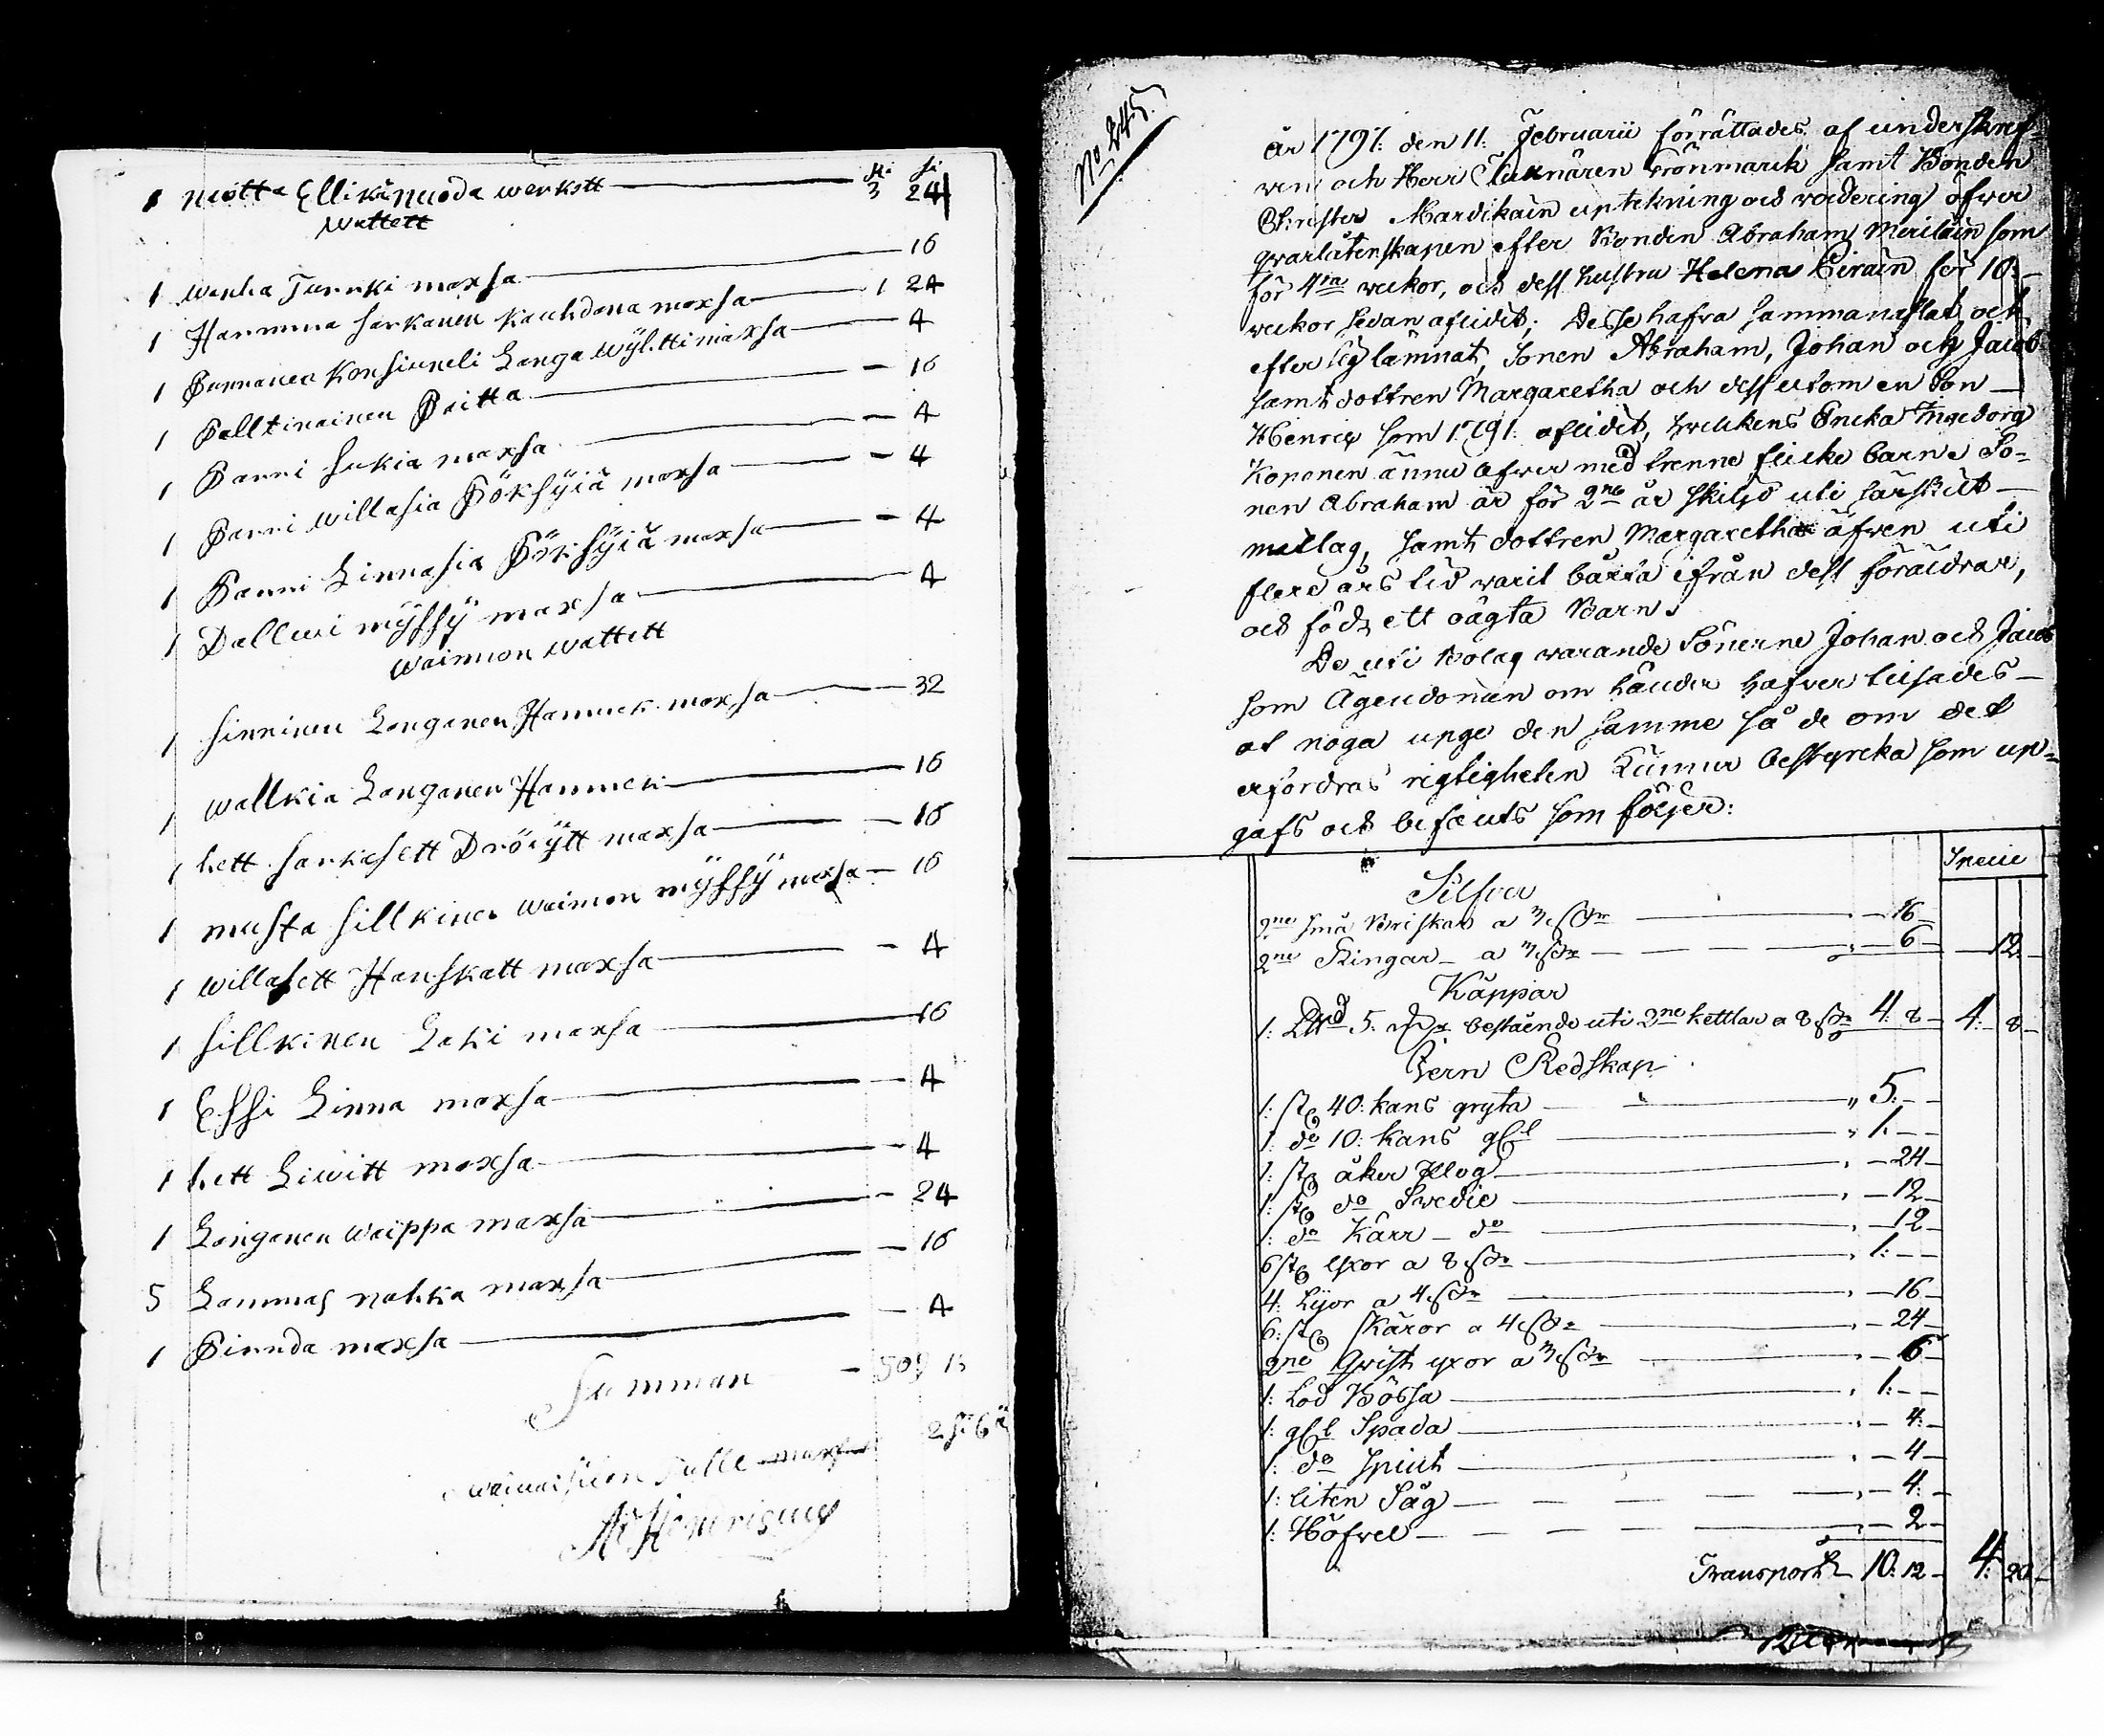 Rr ss
1 nuotta Ellikä nuoda werkott 3 24
wattett
1 wanha Turrki maxsa 16
1 Harmma sarkanen kauhdana maxsa 1 24
1 Punanen Korsirneli Langa wyhtti maxsa 4
1 Palltinainen Paitta 16
1 Parri sukia maxsa 4
1 Parri willasia Pöksyiä maxsa 4
1 Parri Linnasia Pöksyiä maxsa 4
1 Dallwi myssy maxsa 4
waimon wattett
1 sinninen Langanen Hammek maxsa 32
1 wallkia Langanen Hammek 16
1 hett sarkasett Dröiytt maxsa 16
1 musta sillkinen waimon myssy maxsa 16
1 willasett Hanskatt maxsa 4
1 sillkinen Laki maxsa 16
1 Essi Linna maxsa 4
1 hett Liwitt maxsa 4
1 Langanen waippa maxsa 24
5 Lammas nahka maxsa 16
1 Pinnda maxsa 4
Summan 509
2 s: 6
waiwaisten
No 245.
år 1791: den 11: Februarii förrättades af underskref-
ven och Herr Grönmarck samt Bonden
Christer Mardikain uptekning och värdering öfver
qvarlåtenskapen efter Bonden Abraham Meriläin som
för 4ra veckor, och dess hustru Helena Piräin för 10
veckor sedan aflidit; Desse hafva sammanaflat och
efter sig lämnat, Sonen Abraham, Johan och Jacob
samt dottren Margaretha och dessutom en Son
Henric som 1791 aflidit, hvilkens Encka Ingeborg
Koponen ännu lefver med trenne flicke barn. So-
nen Abraham är för 2ne år skiljd uti särskilt
matlag, samt dottren Margaretha äfven uti
flere års tid varit bårta ifrån dess föräldrar,
och födt ett oägta Barn.
De uti Bolag varande Sönerne Johan och Jacob
som Ägendomen om händer hafver tilsades
at noga upge den samme så de om det
erfordras rigtigheten kunna bestyrcka som up-
gafs och befants som följer:
Specie
Silfver
2ne små Briskar a 16
2ne Ringar a 6 12
Kåppar
1: 5. bestående uti 3ne kettlar a 8 4: 8 4: 8
Jern Redskap
1: st 40: kans gryta 5:
1: do 10: kans 1:
1: st åker Plog 24
1: st do Svedie 12
1: do Kärr do 12
6 st yxor a 8 1:
4: Lijor a 4 16
6: st skäror a 4 24
2ne Qvist yxor a 6
1: Lod Bössa 1:
1: Spada 4
1: do spiut 4
1: liten Såg 4
1: Höfvel 2
Transport 10: 12 4: 20